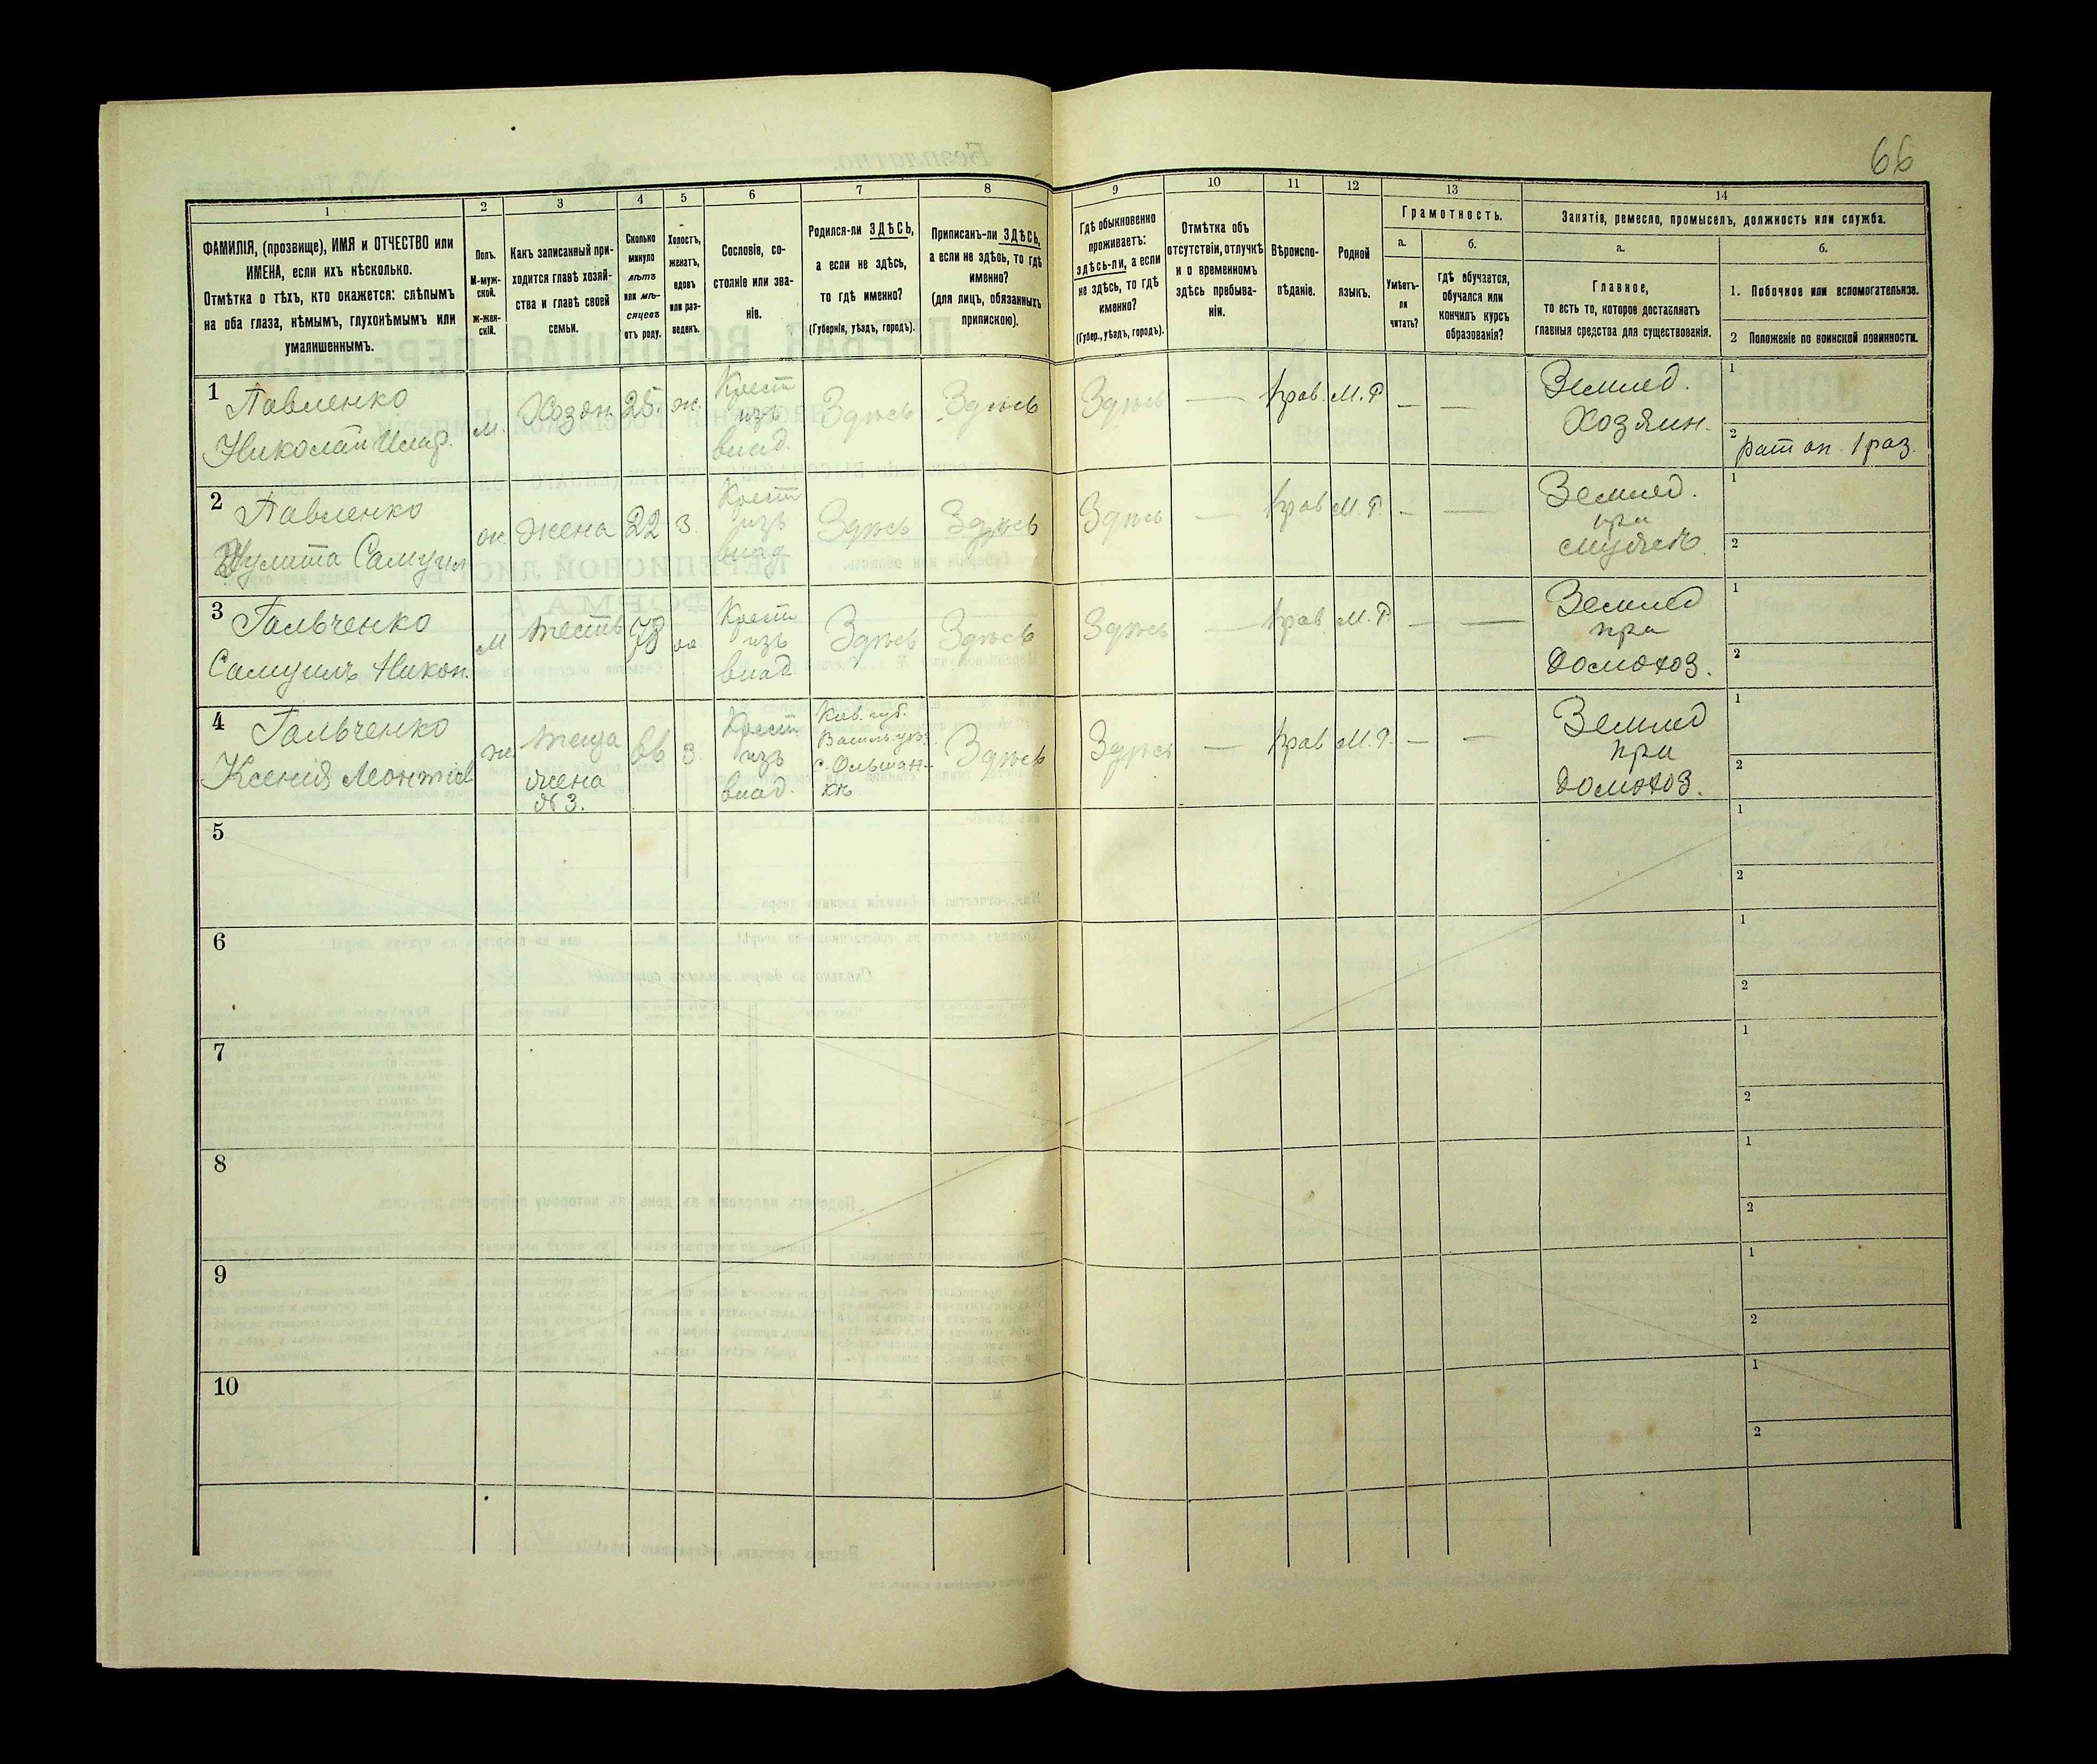 66
1
2
3
4
5
6
7
8
9
10
11
12
13
14
ФАМИЛІЯ, (прозвище), ИМЯ и ОТЧЕСТВО или
ИМЕНА, если ихъ нѣсколько.
Отмѣтка о тѣхъ, кто окажется: слѣпымъ
на оба глаза, нѣмымъ, глухонѣмымъ или
умалишеннымъ.
Полъ.
М-муж-
ской.
Ж-жен-
скій.
Какъ записанный при-
ходится главѣ хозяй-
ства и главѣ своей
семьи.
Сколько
минуло
лѣтъ
или мѣ-
сяцевъ
отъ роду.
Холостъ,
женатъ,
вдовъ
или раз-
веденъ.
Сословіе, со-
стояніе или зва-
ніе.
Родился-ли ЗДѢСЬ,
а если не здѣсь,
то гдѣ именно?
(Губернія, уѣздъ, городъ).
Приписанъ-ли ЗДѢСЬ,
а если не здѣсь, то гдѣ
именно?
(для лицъ, обязанныхъ
припискою).
Гдѣ обыкновенно
проживаетъ:
здѣсь-ли, а если
не здѣсь, то гдѣ
именно?
(Губер., уѣздъ, городъ).
Отмѣтка объ
отсутствіи, отлучкѣ
и о временномъ
здѣсь пребыва-
ніи.
Вѣроиспо-
вѣданіе.
Родной
языкъ.
Грамотность.
а.
б.
Умѣетъ-
ли
читать?
гдѣ обучается,
обучался или
кончилъ курсъ
образованія?
Занятіе, ремесло, промыселъ, должность или служба.
а.
б.
Главное,
то есть то, которое доставляетъ
главныя средства для существованія.
1. Побочное или вспомогательное.
2 Положеніе по воинской повинности.
1 Павленко
Николай Илар.
м.
Хозяин.
25.
ж.
Крест
изъ
влад.
Здѣсь
Здѣсь
Здѣсь
—
Прав.
М. Р
—
—
Землед.
Хозяин.
1
2 рат оп. 1 раз.
2 Павленко
Самуил
ж.
жена
22
З.
Крест
изъ
влад
Здѣсь
Здѣсь
Здѣсь
—
Прав
М. Р.
—
—
Землед.
при
мужѣ
1
2
3 Гальченко
Самуилъ Никон.
м
тесть
Крест
изъ
влад
Здѣсь
Здѣсь
Здѣсь
—
Прав
М. Р.
—
—
Землед
при
домохоз.
1
2
4 Гальченко
Ксенія Леонтіев
ж.
теща
жена
№ 3.
З.
Крест.
изъ
влад.
Кіев. губ.
Васильк. уѣз.
с. Ольшан-
кѣ
Здѣсь
Здѣсь
—
Прав
М. Р.
—
—
Землед
при
домохоз.
1
2
5
1
2
6
1
2
7
1
2
8
1
2
9
1
2
10
1
2